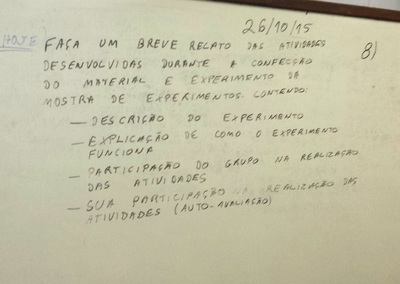 26/10/15
HOJE FAÇA UM BREVE RELATO DAS ATIVIDADES 8)
DESENVOLVIDAS DURANTE A CONFECÇÃO
DO MATERIAL E EXPERIMENTO DA
MOSTRA DE EXPERIMENTOS. CONTENDO:
— DESCRIÇÃO DO EXPERIMENTO
— EXPLICAÇÃO DE COMO O EXPERIMENTO
FUNCIONA
— PARTICIPAÇÃO DO GRUPO NA REALIZAÇÃO
DAS ATIVIDADES
— SUA PARTICIPAÇÃO NA REALIZAÇÃO DAS
ATIVIDADES (AUTO-AVALIAÇÃO)